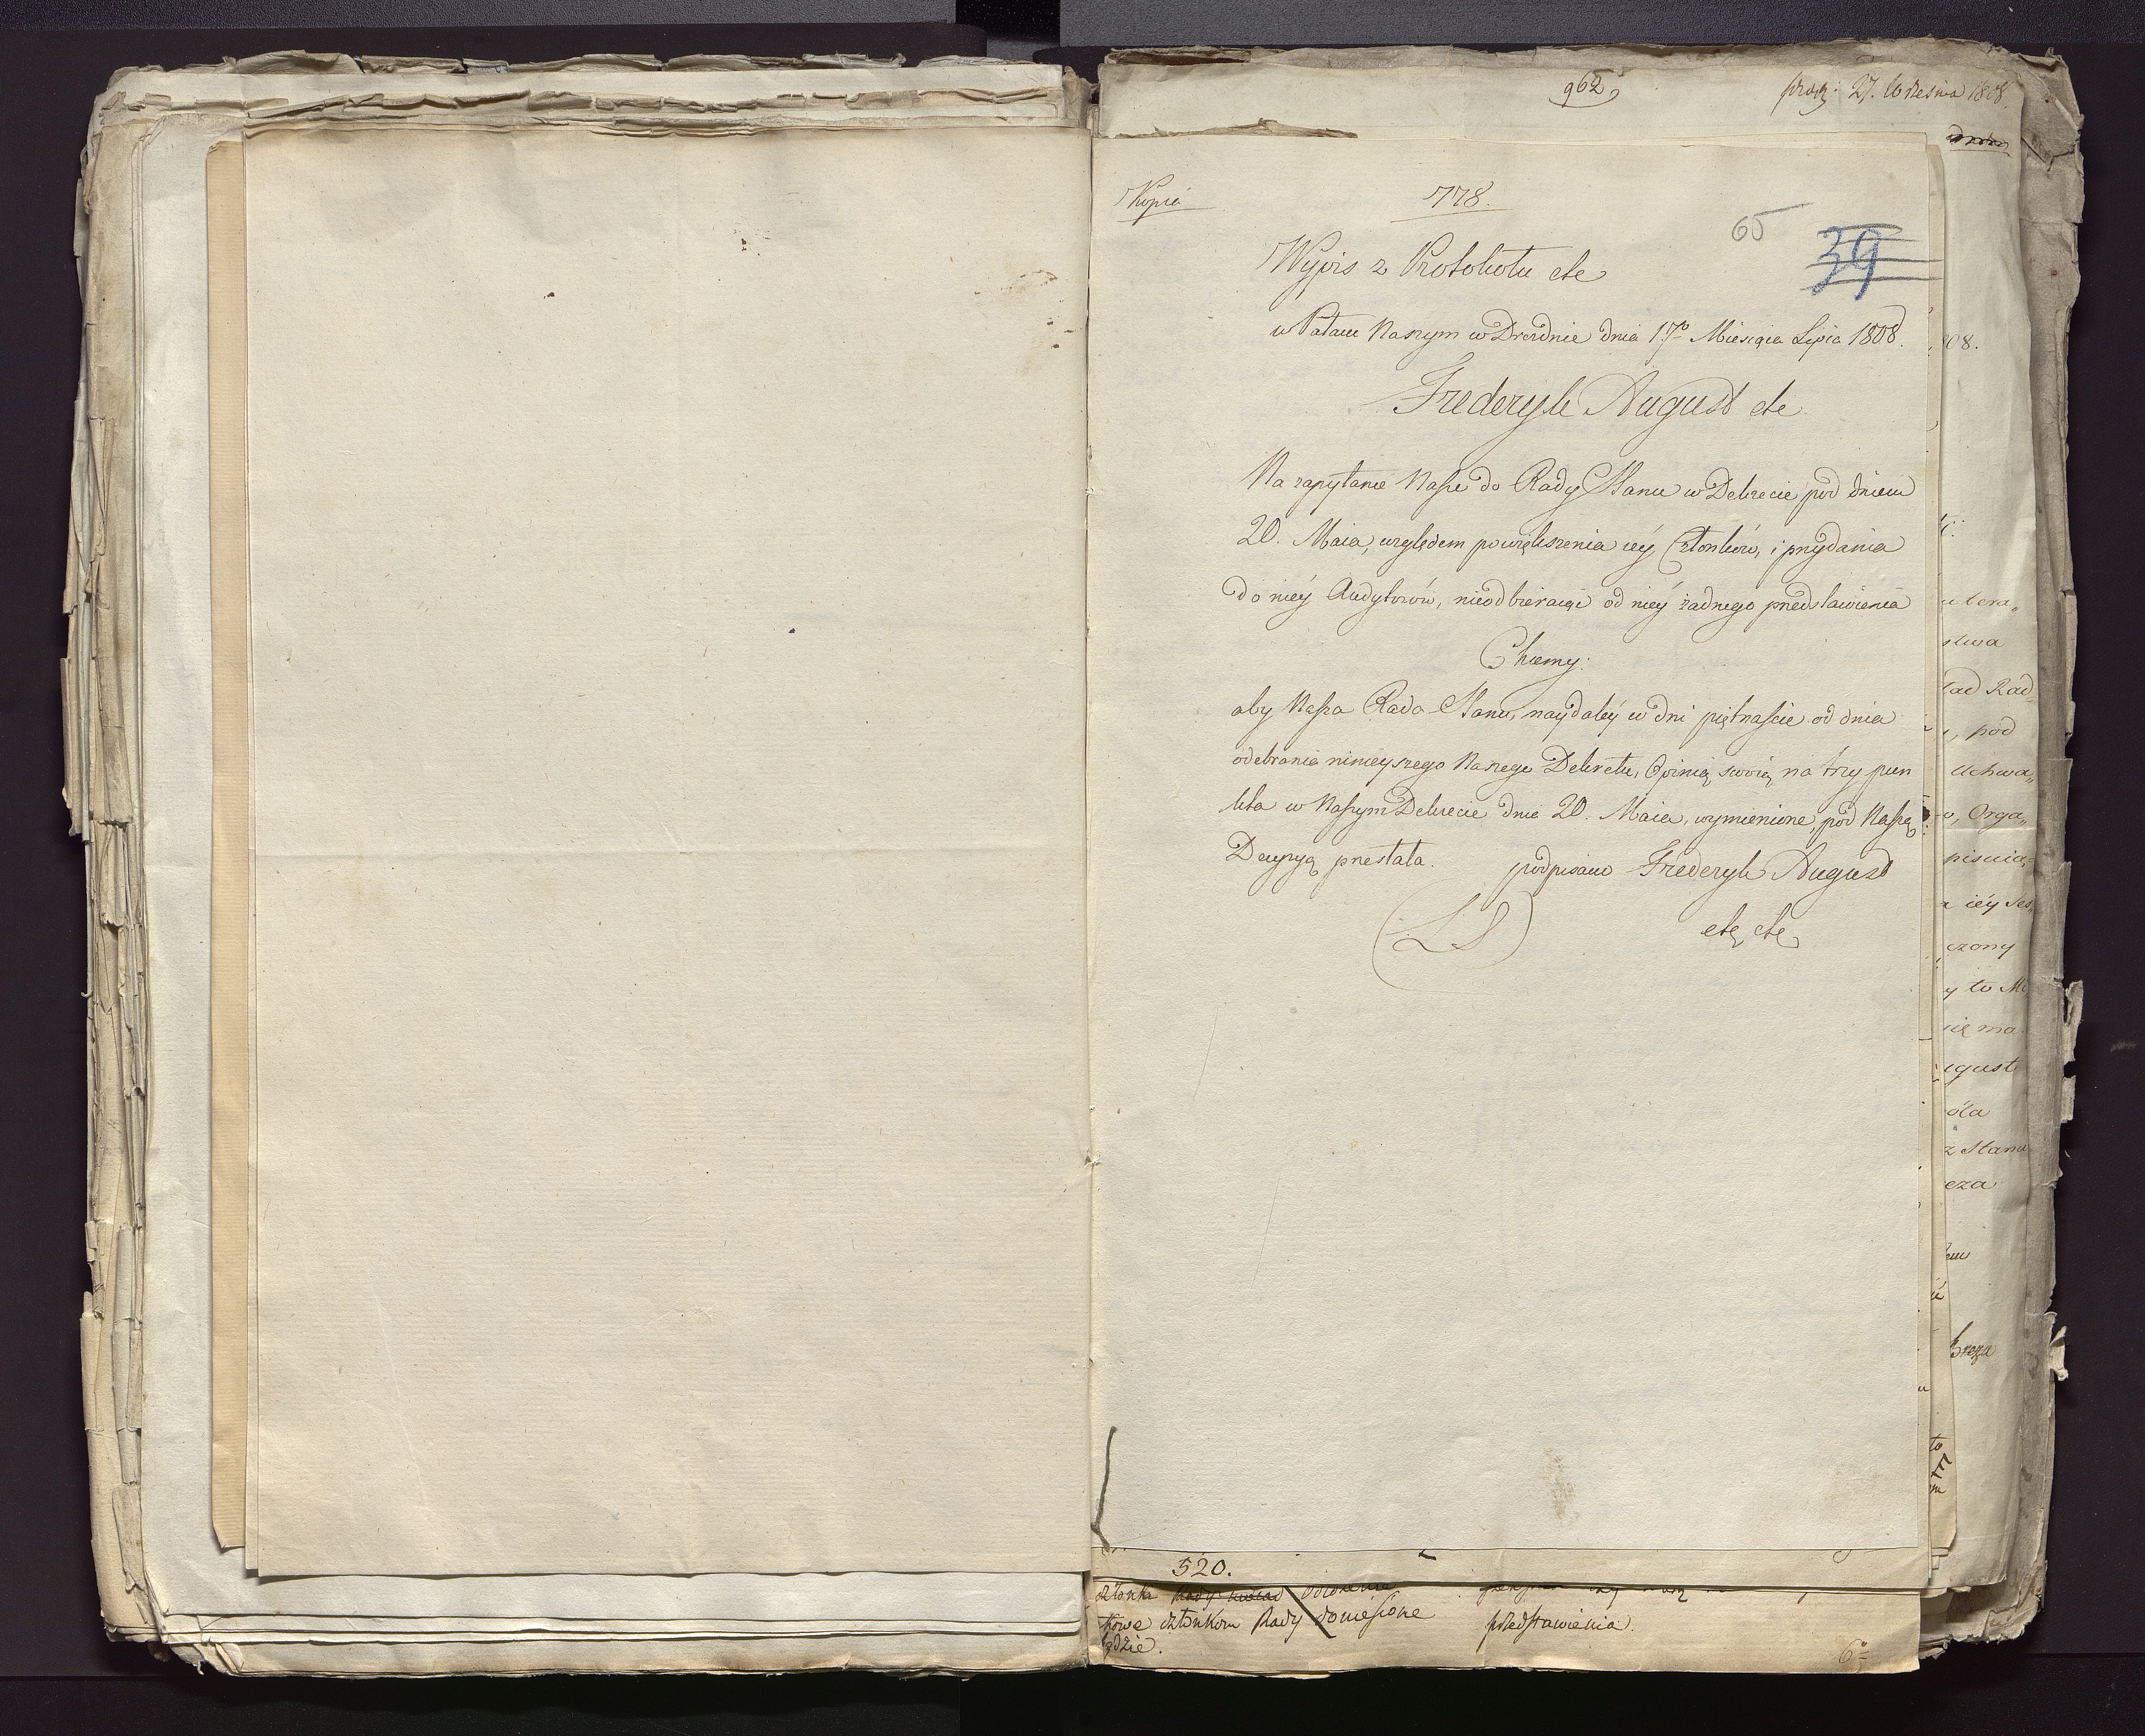 962
27. Września 1808.
Kopia
778.
65
39
Wypis z Protokołu etc
w Pałacu Naszym w Dreźdnie dnia 17º Miesiąca Lipca 1808.
Fryderyk August etc
Na zapytanie Nasze do Rady Stanu w Dekrecie pod dniem
20. Maia, względem powiększenia iéy Członków, i przydania
do niéy Audytorów, nieodbieraiąc od niéy żadnego przedstawienia
Chcemy:
aby Nasza Rada Stanu, naydaléy w dni piętnaście od dnia
odebrania ninieyszego Naszego Dekretu, Opinią swoią na trzy pun
kta w Naszym Dekrecie dnia 20. Maia, wymienione, pod Naszą
Decyzyą przesłała. podpisano Fryderyk August
(LS) etc, etc
808.
stwa
pod
Uchwa„
Orga„
iéy Ses
czony
y to Mi
się ma
ugust
óla
z Stanu
eza
Breza
520.
członka
kowe członkom Rady doniesione przedstawienia.
będzie.
6º